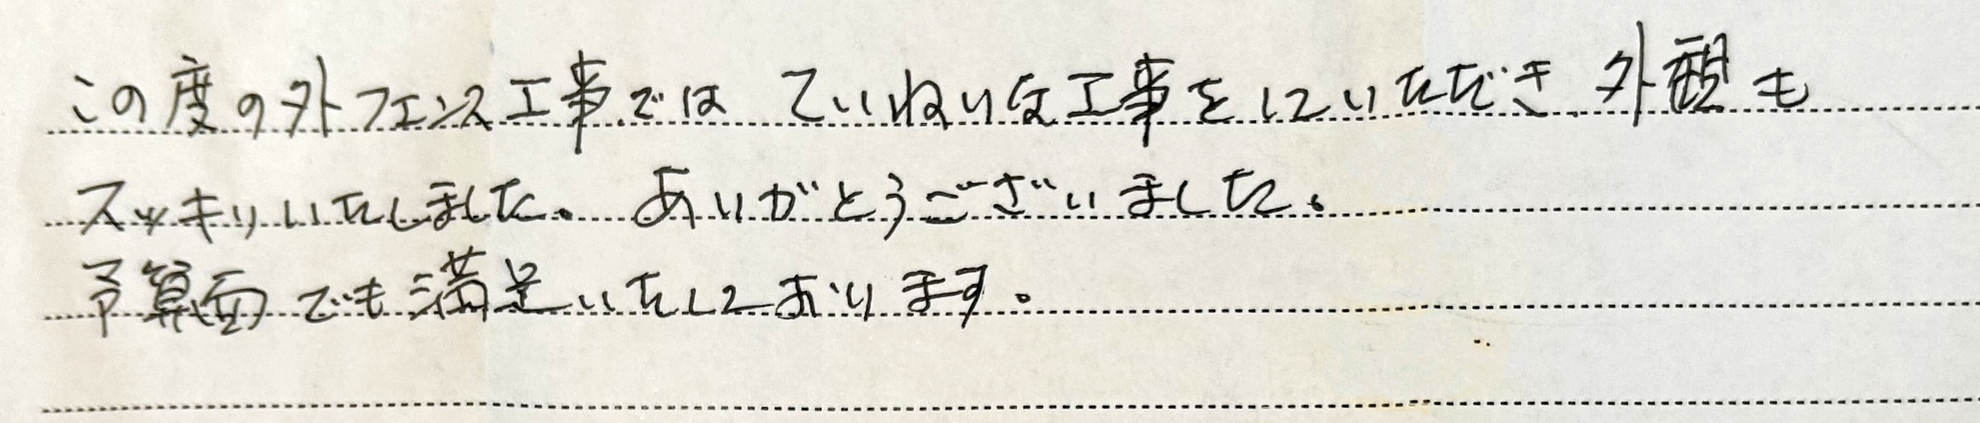 この度の外フェンス工事では ていねいな工事をしていただき、外観も
スッキリいたしました。ありがとうございました。
予算面でも満足いたしております。